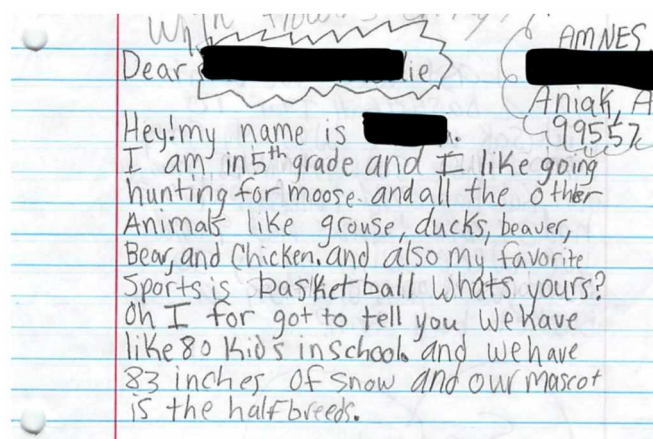 AMNES
Dear lie
Aniak, A
99557
Hey! my name is
I am in 5th grade and I like going
hunting for moose. and all the other
Animals like grouse, ducks, beaver,
Bear, and Chicken. and also my favorite
Sports is basketball whats yours?
Oh I for got to tell you we have
like 80 kids in school. and we have
83 inches of snow and our mascot
is the halfbreeds.